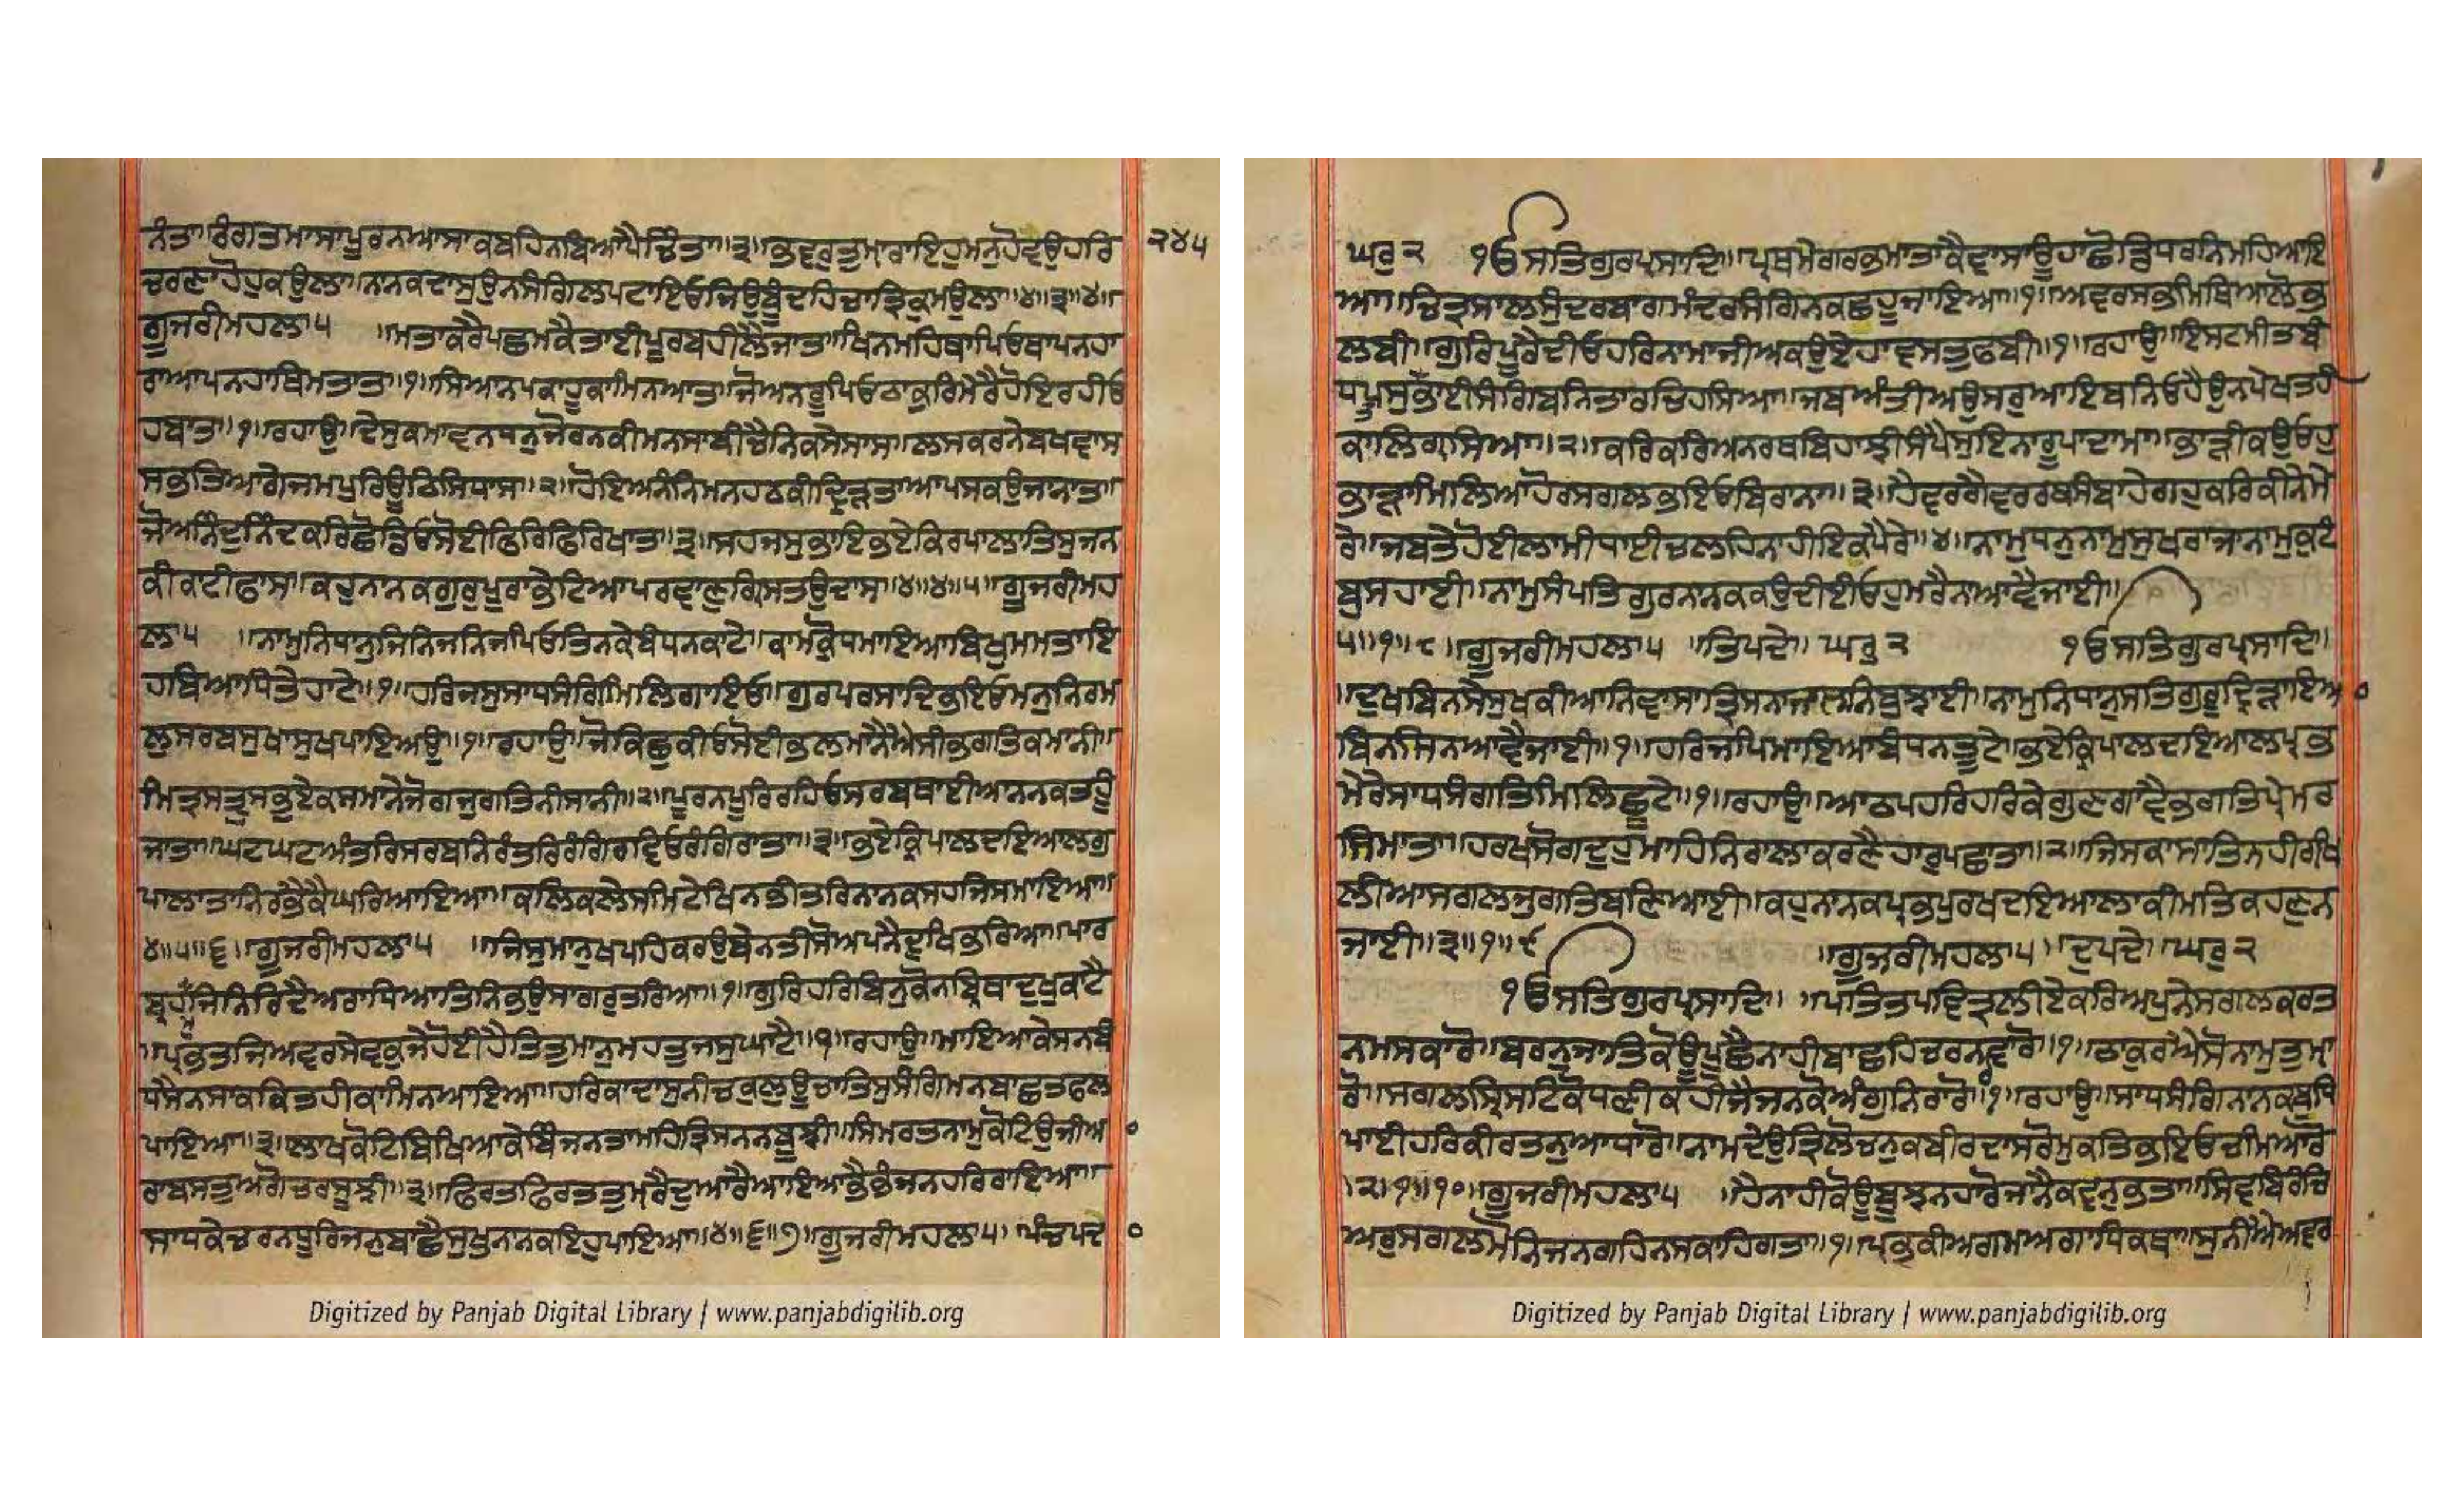 ਨੰਤਾ॥ਰੰਗਤਮਾਸਾਪੂਰਨਆਸਾਕਬਹਿਨਬਿਆਪੈਚਿੰਤਾ॥੩॥ਭਵਰੁਤੁਮ੍ਹਾਰਾਇਹੁਮਨੁਹੋਵਉਹਰਿ ੨੪੫
ਚਰਣਾਹੋਹੁਕਉਲਾ॥ਨਾਨਕਦਾਸੁਉਨਸੰਗਿਲਪਟਾਇਓਜਿਉਬੂੰਦਹਿਚਾਤ੍ਰਿਕੁਮਉਲਾ॥੪॥੩॥੪॥
ਗੂਜਰੀਮਹਲਾ੫ ॥ਮਤਾਕਰੈਪਛਮਕੈਤਾਈਪੂਰਬਹੀਲੈਜਾਤ॥ਖਿਨਮਹਿਥਾਪਿਓਥਾਪਨਹਾ
ਰਾਆਪਨਹਾਥਿਮਤਾਤ॥੧॥ਸਿਆਨਪਕਾਹੂਕਾਮਿਨਆਤ॥ਜੋਅਨਰੂਪਿਓਠਾਕੁਰਿਮੇਰੈਹੋਇਰਹੀਓ
ਹਬਾਤ॥੧॥ਰਹਾਉ॥ਦੇਸੁਕਮਾਵਨਧਨੁਜੋਰਨਕੀਮਨਸਾਬੀਚੈਨਿਕਸੇਸਾਸ॥ਲਸਕਰਨੇਬਖਵਾਸ
ਸਭਤਿਆਗੇਜਮਪੁਰਿਊਠਿਸਿਧਾਸ॥੨॥ਹੋਇਅਨੰਨਿਮਨਹਠਕੀਦ੍ਰਿੜਤਾਆਪਸਕਉਜਾਨਾਤ॥
ਜੋਅਨਿੰਦੁਨਿੰਦਕਰਿਛੋਡਿਓਸੋਈਫਿਰਿਫਿਰਿਖਾਤ॥੩॥ਸਹਜਸੁਭਾਇਭਏਕਿਰਪਾਲਾਤਿਸੁਜਨ
ਕੀਕਾਟੀਫਾਸ॥ਕਹੁਨਾਨਕਗੁਰੁਪੂਰਾਭੇਟਿਆਪਰਵਾਣੁਗਿਰਸਤਉਦਾਸ॥੪॥੪॥੫॥ਗੂਜਰੀਮਹ
ਲਾ੫ ॥ਨਾਮੁਨਿਧਾਨੁਜਿਨਿਜਨਿਜਪਿਓਤਿਨਕੇਬੰਧਨਕਾਟੇ॥ਕਾਮਕ੍ਰੋਧਮਾਇਆਬਿਖੁਮਮਤਾਇ
ਹਬਿਆਧਿਤੇਹਾਟੇ॥੧॥ਹਰਿਜਸੁਸਾਧਸੰਗਿਮਿਲਿਗਾਇਓ॥ਗੁਰਪਰਸਾਦਿਭਇਓਮਨੁਨਿਰਮ
ਲੁਸਰਬਸੁਖਾਸੁਖਪਾਇਅਉ॥੧॥ਰਹਾਉ॥ਜੋਕਿਛੁਕੀਓਸੋਈਭਲਮਾਨੈਐਸੀਭਗਤਿਕਮਾਨੀ॥
ਮਿਤ੍ਰਸਤ੍ਰੁਸਭਏਕਸਮਾਨੈਜੋਗਜੁਗਤਿਨੀਸਾਨੀ॥੨॥ਪੂਰਨਪੂਰਿਰਹਿਓਸਰਬਥਾਈਆਨਨਕਤਹੂੰ
ਜਾਤਾ॥ਘਟਘਟਅੰਤਰਿਸਰਬਨਿਰੰਤਰਿਰੰਗਿਰਵਿਓਰੰਗਿਰਾਤਾ॥੩॥ਭਏਕ੍ਰਿਪਾਲਦਇਆਲਗੁ
ਪਾਲਾਤਾਨਿਰਭੈਕੈਘਰਿਆਇਆ॥ਕਲਿਕਲੇਸਮਿਟੇਖਿਨਭੀਤਰਿਨਾਨਕਸਹਜਿਸਮਾਇਆ॥
੪॥੫॥੬॥ਗੂਜਰੀਮਹਲਾ੫ ॥ਜਿਸੁਮਾਨੁਖਪਹਿਕਰਉਬੇਨਤੀਸੋਅਪਨੈਦੁਖਿਭਰਿਆ॥ਪਾਰ
ਬ੍ਰਹਮੁਜਿਨਿਰਿਦੈਅਰਾਧਿਆਤਿਨਿਭਉਸਾਗਰੁਤਰਿਆ॥੧॥ਗੁਰਿਹਰਿਬਿਨੁਕੋਨਬ੍ਰਿਥਾਦੁਖੁਕਾਟੈ
॥ਪ੍ਰਭਤਜਿਅਵਰਸੇਵਕੁਜੇਹੋਈਹੈਤਿਤੁਮਾਨੁਮਹਤੁਜਸੁਘਾਟੈ॥੧॥ਰਹਾਉ॥ਮਾਇਆਕੇਸਨਬੰ
ਧਸੈਨਸਾਕਕਿਤਹੀਕਾਮਿਨਆਇਆ॥ਹਰਿਕਾਦਾਸੁਨੀਚਕੁਲੁਊਚਾਤਿਸੁਸੰਗਿਮਨਬਾਂਛਤਫਲ
ਪਾਇਆ॥੨॥ਲਾਖਕੋਟਿਬਿਖਿਆਕੇਬਿੰਜਨਤਾਮਹਿਤ੍ਰਿਸਨਨਬੂਝੀ॥ਸਿਮਰਤਨਾਮੁਕੋਟਿਉਜੀਆ
ਰਾਬਸਤੁਅਗੋਚਰਸੂਝੀ॥੩॥ਫਿਰਤਫਿਰਤਤੁਮ੍ਹਰੈਦੁਆਰੈਆਇਆਭੈਭੰਜਨਹਰਿਰਾਇਆ॥
ਸਾਧਕੇਚਰਨਧੂਰਿਜਨੁਬਾਛੈਸੁਖੁਨਾਨਕਇਹੁਪਾਇਆ॥੪॥੬॥੭॥ਗੂਜਰੀਮਹਲਾ੫॥ਪੰਚਪਦੇ
Digitized by Panjab Digital Library | www.panjabdigilib.org
ਘਰੁ੨ ੴਸਤਿਗੁਰਪ੍ਰਸਾਦਿ॥ਪ੍ਰਥਮੇਗਰਭਮਾਤਾਕੈਵਾਸਾਊਹਾਛੋਡਿਧਰਨਿਮਹਿਆਇ
ਆ॥ਚਿਤ੍ਰਸਾਲਸੁੰਦਰਬਾਗਮੰਦਰਸੰਗਿਨਕਛਹੂਜਾਇਆ॥੧॥ਅਵਰਸਭਮਿਥਿਆਲੋਭ
ਲਬੀ॥ਗੁਰਿਪੂਰੈਦੀਓਹਰਿਨਾਮਾਜੀਅਕਉਏਹਾਵਸਤੁਫਬੀ॥੧॥ਰਹਾਉ॥ਇਸਟਮੀਤਬੰ
ਧਪਸੁਤਭਾਈਸੰਗਿਬਨਿਤਾਰਚਿਹਸਿਆ॥ਜਬਅੰਤੀਅਉਸਰੁਆਇਬਨਿਓਹੈਉਨਪੇਖਤਹੀ
ਕਾਲਿਗ੍ਰਸਿਆ॥੨॥ਕਰਿਕਰਿਅਨਰਥਬਿਹਾਝੀਸੰਪੈਸੁਇਨਾਰੂਪਾਦਾਮਾ॥ਭਾੜੀਕਉਓਹੁ
ਭਾੜਾਮਿਲਿਆਹੋਰਸਗਲਭਇਓਬਿਰਾਨਾ॥੩॥ਹੈਵਰਗੈਵਰਰਥਸੰਬਾਹੇਗਹੁਕਰਿਕੀਨੇਮੇ
ਰੇ॥ਜਬਤੇਹੋਈਲਾਂਮੀਧਾਈਚਲਹਿਨਾਹੀਇਕਪੈਰੇ॥੪॥ਨਾਮੁਧਨੁਨਾਮੁਸੁਖਰਾਜਾਨਾਮੁਕੁਟੰ
ਬੁਸਹਾਈ॥ਨਾਮੁਸੰਪਤਿਗੁਰਨਾਨਕਕਉਦੀਈਓਹੁਮਰੈਨਾਆਵੈਜਾਈ॥
੫॥੧॥੮॥ਗੂਜਰੀਮਹਲਾ੫ ॥ਤਿਪਦੇ॥ਘਰੁ੨ ੴਸਤਿਗੁਰਪ੍ਰਸਾਦਿ॥
॥ਦੁਖਬਿਨਸੇਸੁਖਕੀਆਨਿਵਾਸਾਤ੍ਰਿਸਨਾਜਲਨਿਬੁਝਾਈ॥ਨਾਮੁਨਿਧਾਨੁਸਤਿਗੁਰੂਦ੍ਰਿੜਾਇਆ
ਬਿਨਸਿਨਆਵੈਜਾਈ॥੧॥ਹਰਿਜਪਿਮਾਇਆਬੰਧਨਤੂਟੇ॥ਭਏਕ੍ਰਿਪਾਲਦਇਆਲਪ੍ਰਭ
ਮੇਰੇਸਾਧਸੰਗਤਿਮਿਲਿਛੂਟੇ॥੧॥ਰਹਾਉ॥ਆਠਪਹਰਿਹਰਿਕੇਗੁਣਗਾਵੈਭਗਤਿਪ੍ਰੇਮਰ
ਸਿਮਾਤਾ॥ਹਰਖਸੋਗਦੁਹੁਮਾਹਿਨਿਰਾਲਾਕਰਣੈਹਾਰੁਪਛਾਤਾ॥੨॥ਜਿਸਕਾਸਾਤਿਨਹੀਰਖਿ
ਲੀਆਸਗਲਜੁਗਤਿਬਣਿਆਈ॥ਕਹੁਨਾਨਕਪ੍ਰਭਪੁਰਖਦਇਆਲਾਕੀਮਤਿਕਹਣੁਨ
ਜਾਈ॥੩॥੧॥੯ ॥ਗੂਜਰੀਮਹਲਾ੫॥ਦੁਪਦੇ॥ਘਰੁ੨
ੴਸਤਿਗੁਰਪ੍ਰਸਾਦਿ॥ ॥ਪਤਿਤਪਵਿਤ੍ਰਲੀਏਕਰਿਅਪੁਨੇਸਗਲਕਰਤ
ਨਮਸਕਾਰੋ॥ਬਰਨੁਜਾਤਿਕੋਊਪੂਛੈਨਾਹੀਬਾਛਹਿਚਰਨਰਵਾਰੋ॥੧॥ਠਾਕੁਰਐਸੋਨਾਮੁਤੁਮ੍ਹਾ
ਰੋ॥ਸਗਲਸ੍ਰਿਸਟਿਕੋਧਣੀਕਹੀਜੈਜਨਕੋਅੰਗੁਨਿਰਾਰੋ॥੧॥ਰਹਾਉ॥ਸਾਧਸੰਗਿਨਾਨਕਬੁਧਿ
ਪਾਈਹਰਿਕੀਰਤਨੁਆਧਾਰੋ॥ਨਾਮਦੇਉਤ੍ਰਿਲੋਚਨੁਕਬੀਰਦਾਸਰੋਮੁਕਤਿਭਇਓਚੰਮਿਆਰੋ
॥੨॥੧॥੧੦॥ਗੂਜਰੀਮਹਲਾ੫ ॥ਹੈਨਾਹੀਕੋਊਬੂਝਨਹਾਰੋਜਾਨੈਕਵਨੁਭਤਾ॥ਸਿਵਬਿਰੰਚਿ
ਅਰੁਸਗਲਮੋਨਿਜਨਗਹਿਨਸਕਾਹਿਗਤਾ॥੧॥ਪ੍ਰਭਕੀਅਗਮਅਗਾਧਿਕਥਾ॥ਸੁਨੀਐਅਵਰ
Digitized by Panjab Digital Library | www.panjabdigilib.org